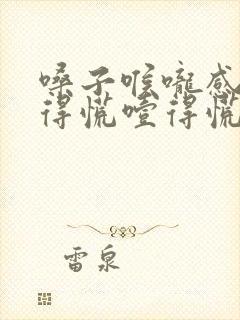 嗓子喉咙感
得慌噎得慌
雷泉